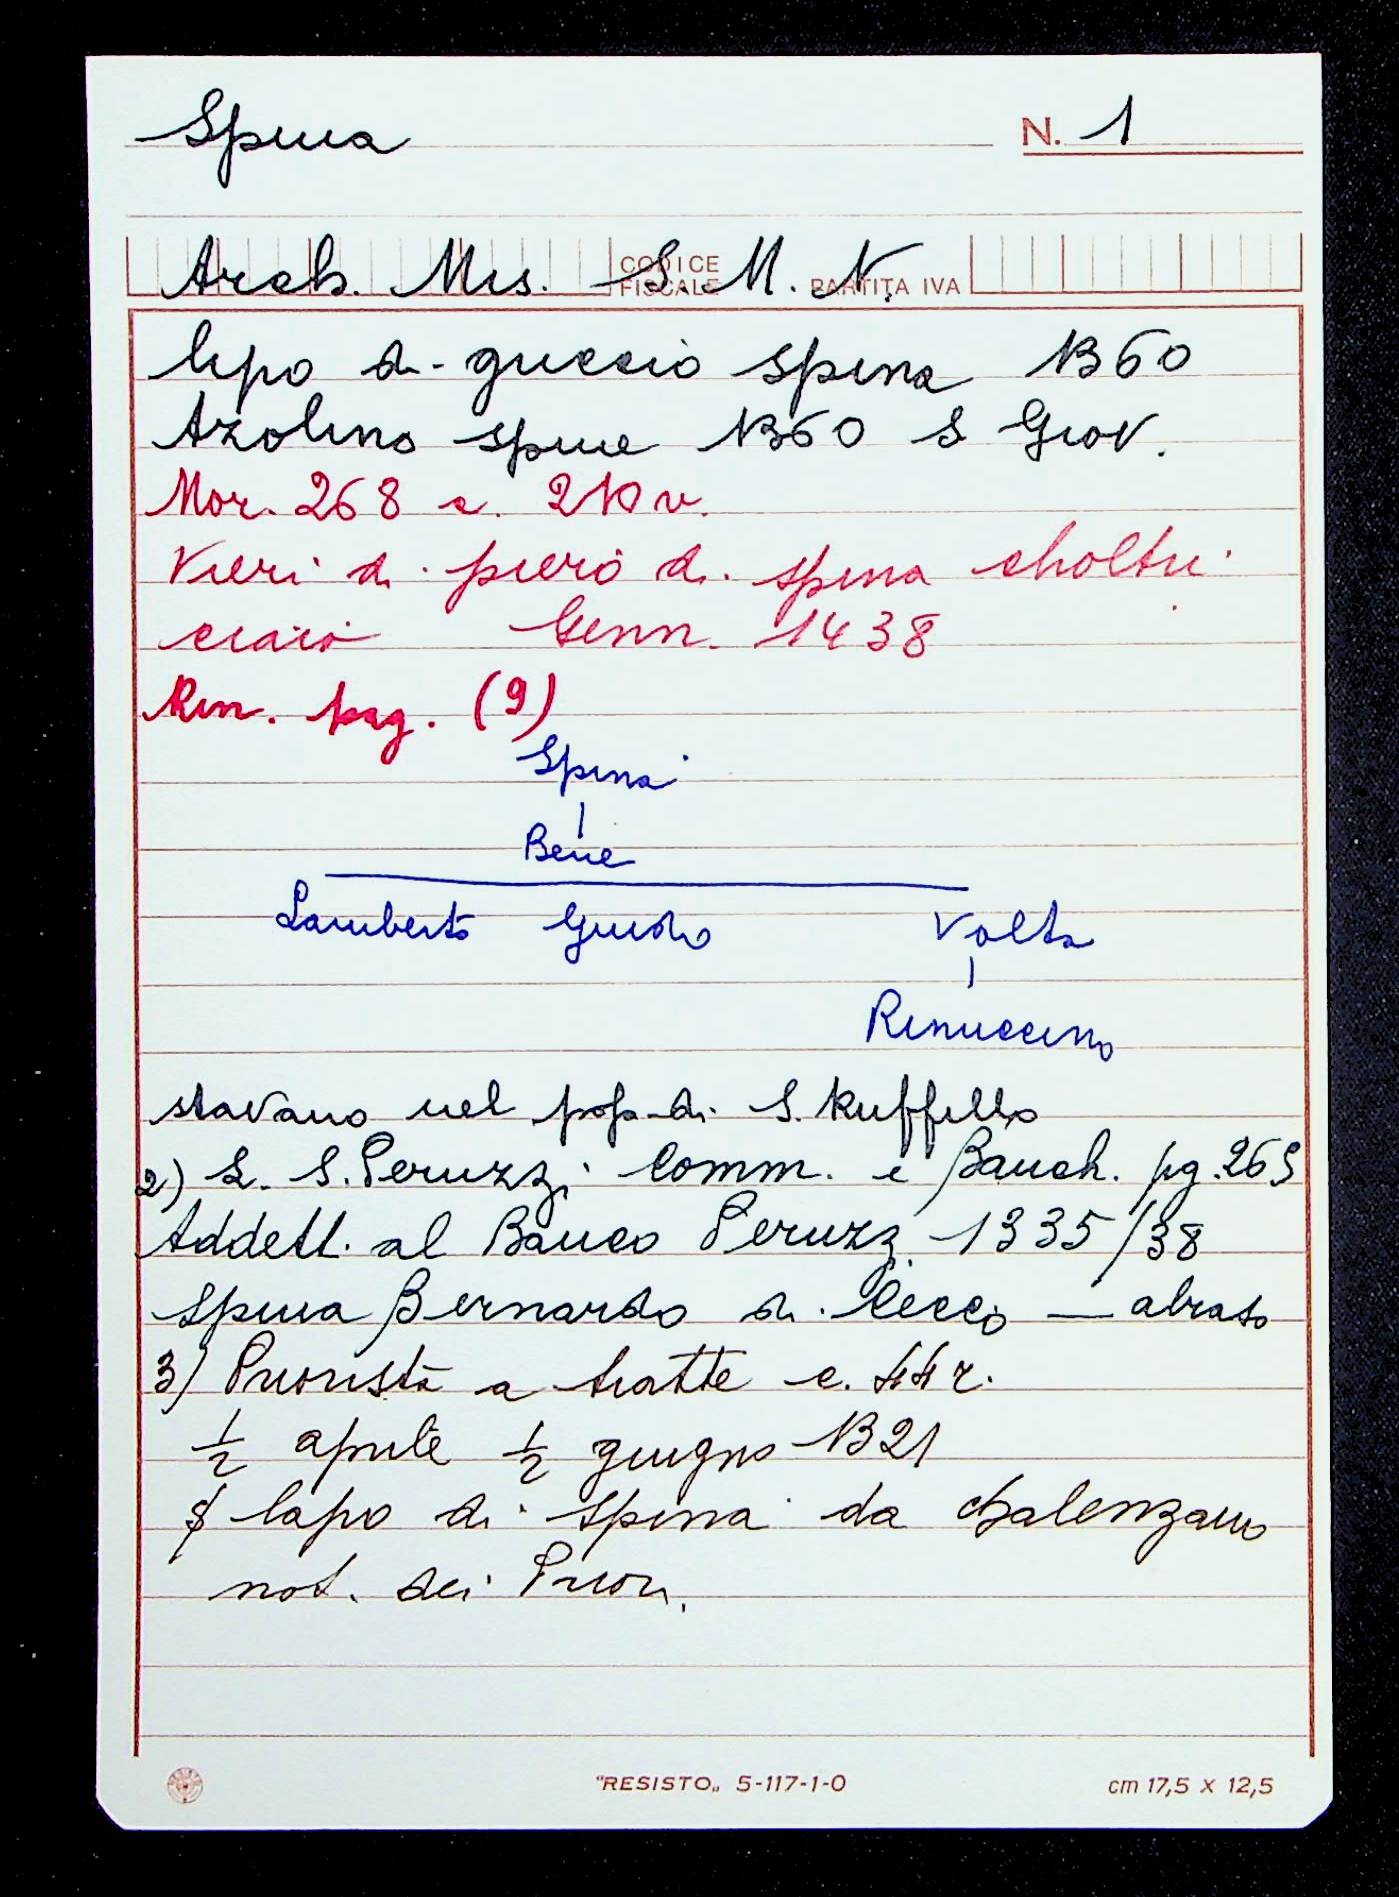 Spina
N. 1
Arch. Mis. S. M. N.
CODICE FISCALE
PARTITA IVA
lapo di guccio spina 1360
Azolino spine 1360 S Giov.
Mor. 268 c. 210 v.
Vieri di piero di spina choltri
ciaio Genn. 1438
Rin. pag. (9)
Spina
Bene
Lamberto Guido Volta
Rinuccino
stavano nel pop. di S. Ruffillo
2) L. S. Peruzzi Comm. e Banch. pg. 269
Addett. al Banco Peruzzi 1335/38
Spina Bernardo di Cecco — abraso
3) Priorista a tratte c. 44 r.
½ aprile ½ giugno 1321
lapo di spina da chalenzano
not. dei Priori.
"RESISTO„ 5-117-1-0
cm 17,5 x 12,5